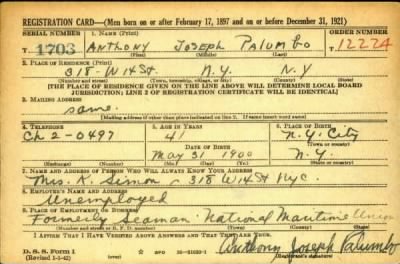 REGISTRATION CARD—(Men born on or after February 17, 1897 and on or before December 31, 1921)
SERIAL NUMBER 1. NAME (Print) ORDER NUMBER
T 1703 Anthony Joseph Palumbo T 12224
(First) (Middle) (Last)
2. PLACE OF RESIDENCE (Print)
318-W 14 St. N.Y. N.Y
(Number and street) (Town, township, village, or city) (County) (State)
[THE PLACE OF RESIDENCE GIVEN ON THE LINE ABOVE WILL DETERMINE LOCAL BOARD
JURISDICTION; LINE 2 OF REGISTRATION CERTIFICATE WILL BE IDENTICAL]
3. MAILING ADDRESS
Same.
[Mailing address if other than place indicated on line 2. If same insert word same]
4. TELEPHONE 5. AGE IN YEARS 6. PLACE OF BIRTH
Ch 2-0497 41 N.Y. City
DATE OF BIRTH (Town or county)
May 31 1900 N.Y.
(Exchange) (Number) (Mo.) (Day) (Yr.) (State or country)
7. NAME AND ADDRESS OF PERSON WHO WILL ALWAYS KNOW YOUR ADDRESS
Mrs. Simon - 318 W 14 St NYC.
8. EMPLOYER'S NAME AND ADDRESS
Unemployed
9. PLACE OF EMPLOYMENT OR BUSINESS
Formerly Seaman National Maritime Union
(Number and street or R. F. D. number) (Town) (County) (State)
I AFFIRM THAT I HAVE VERIFIED ABOVE ANSWERS AND THAT THEY ARE TRUE.
D. S. S. Form 1
(Revised 1-5-42) GPO 16-21630-1 Anthony Joseph Palumbo
(Registrant's signature)